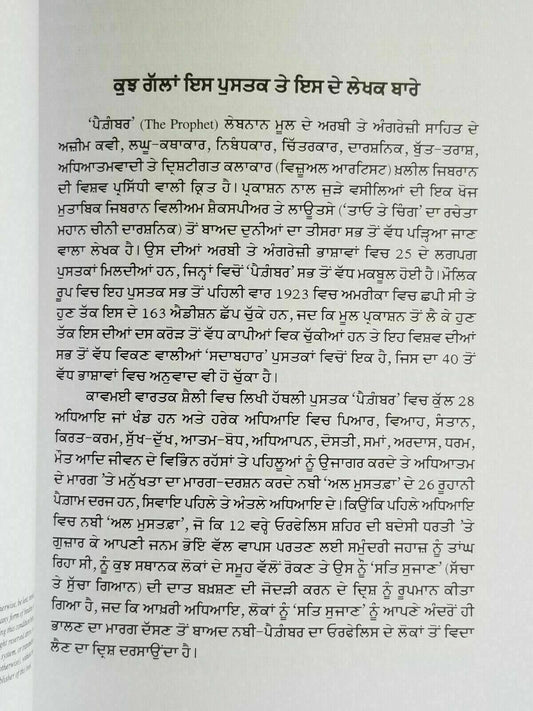 ਕੁਝ ਗੱਲਾਂ ਇਸ ਪੁਸਤਕ ਤੇ ਇਸ ਦੇ ਲੇਖਕ ਬਾਰੇ
'ਪੈਗ਼ੰਬਰ' (The Prophet) ਲੇਬਨਾਨ ਮੂਲ ਦੇ ਅਰਬੀ ਤੇ ਅੰਗਰੇਜ਼ੀ ਸਾਹਿਤ ਦੇ
ਅਜ਼ੀਮ ਕਵੀ, ਲਘੂ-ਕਥਾਕਾਰ, ਨਿਬੰਧਕਾਰ, ਚਿੱਤਰਕਾਰ, ਦਾਰਸ਼ਨਿਕ, ਬੁੱਤ-ਤਰਾਸ਼,
ਅਧਿਆਤਮਵਾਦੀ ਤੇ ਦ੍ਰਿਸ਼ਟੀਗਤ ਕਲਾਕਾਰ (ਵਿਜ਼ੂਅਲ ਆਰਟਿਸਟ) ਖ਼ਲੀਲ ਜਿਬਰਾਨ
ਦੀ ਵਿਸ਼ਵ ਪ੍ਰਸਿੱਧੀ ਵਾਲੀ ਕ੍ਰਿਤ ਹੈ। ਪ੍ਰਕਾਸ਼ਨ ਨਾਲ ਜੁੜੇ ਵਸੀਲਿਆਂ ਦੀ ਇਕ ਖੋਜ
ਮੁਤਾਬਿਕ ਜਿਬਰਾਨ ਵਿਲੀਅਮ ਸ਼ੈਕਸਪੀਅਰ ਤੇ ਲਾਊਤਸੇ ('ਤਾਓ ਤੇ ਚਿੰਗ' ਦਾ ਰਚੇਤਾ
ਮਹਾਨ ਚੀਨੀ ਦਾਰਸ਼ਨਿਕ) ਤੋਂ ਬਾਅਦ ਦੁਨੀਆਂ ਦਾ ਤੀਸਰਾ ਸਭ ਤੋਂ ਵੱਧ ਪੜ੍ਹਿਆ ਜਾਣ
ਵਾਲਾ ਲੇਖਕ ਹੈ। ਉਸ ਦੀਆਂ ਅਰਬੀ ਤੇ ਅੰਗਰੇਜ਼ੀ ਭਾਸ਼ਾਵਾਂ ਵਿਚ 25 ਦੇ ਲਗਪਗ
ਪੁਸਤਕਾਂ ਮਿਲਦੀਆਂ ਹਨ, ਜਿਨ੍ਹਾਂ ਵਿਚੋਂ 'ਪੈਗ਼ੰਬਰ' ਸਭ ਤੋਂ ਵੱਧ ਮਕਬੂਲ ਹੋਈ ਹੈ। ਮੌਲਿਕ
ਰੂਪ ਵਿਚ ਇਹ ਪੁਸਤਕ ਸਭ ਤੋਂ ਪਹਿਲੀ ਵਾਰ 1923 ਵਿਚ ਅਮਰੀਕਾ ਵਿਚ ਛਪੀ ਸੀ ਤੇ
ਹੁਣ ਤੱਕ ਇਸ ਦੇ 163 ਐਡੀਸ਼ਨ ਛੱਪ ਚੁੱਕੇ ਹਨ, ਜਦ ਕਿ ਮੂਲ ਪ੍ਰਕਾਸ਼ਨ ਤੋਂ ਲੈ ਕੇ ਹੁਣ
ਤੱਕ ਇਸ ਦੀਆਂ ਦਸ ਕਰੋੜ ਤੋਂ ਵੱਧ ਕਾਪੀਆਂ ਵਿਕ ਚੁੱਕੀਆਂ ਹਨ ਤੇ ਇਹ ਵਿਸ਼ਵ ਦੀਆਂ
ਸਭ ਤੋਂ ਵੱਧ ਵਿਕਣ ਵਾਲੀਆਂ 'ਸਦਾਬਹਾਰ' ਪੁਸਤਕਾਂ ਵਿਚੋਂ ਇਕ ਹੈ, ਜਿਸ ਦਾ 40 ਤੋਂ
ਵੱਧ ਭਾਸ਼ਾਵਾਂ ਵਿਚ ਅਨੁਵਾਦ ਵੀ ਹੋ ਚੁੱਕਾ ਹੈ।
ਕਾਵਮਈ ਵਾਰਤਕ ਸ਼ੈਲੀ ਵਿਚ ਲਿਖੀ ਹੱਥਲੀ ਪੁਸਤਕ 'ਪੈਗ਼ੰਬਰ' ਵਿਚ ਕੁੱਲ 28
ਅਧਿਆਇ ਜਾਂ ਖੰਡ ਹਨ ਅਤੇ ਹਰੇਕ ਅਧਿਆਇ ਵਿਚ ਪਿਆਰ, ਵਿਆਹ, ਸੰਤਾਨ,
ਕਿਰਤ-ਕਰਮ, ਸੁੱਖ-ਦੁੱਖ, ਆਤਮ-ਬੋਧ, ਅਧਿਆਪਨ, ਦੋਸਤੀ, ਸਮਾਂ, ਅਰਦਾਸ, ਧਰਮ,
ਮੌਤ ਆਦਿ ਜੀਵਨ ਦੇ ਵਿਭਿੰਨ ਰਹੱਸਾਂ ਤੇ ਪਹਿਲੂਆਂ ਨੂੰ ਉਜਾਗਰ ਕਰਦੇ ਤੇ ਅਧਿਆਤਮ
ਦੇ ਮਾਰਗ 'ਤੇ ਮਨੁੱਖਤਾ ਦਾ ਮਾਰਗ-ਦਰਸ਼ਨ ਕਰਦੇ ਨਬੀ 'ਅਲ ਮੁਸਤਫ਼ਾ' ਦੇ 26 ਰੂਹਾਨੀ
ਪੈਗ਼ਾਮ ਦਰਜ ਹਨ, ਸਿਵਾਇ ਪਹਿਲੇ ਤੇ ਅੰਤਲੇ ਅਧਿਆਇ ਦੇ। ਕਿਉਂਕਿ ਪਹਿਲੇ ਅਧਿਆਇ
ਵਿਚ ਨਬੀ 'ਅਲ ਮੁਸਤਫ਼ਾ', ਜੋ ਕਿ 12 ਵਰ੍ਹੇ ਓਰਫੇਲਿਸ ਸ਼ਹਿਰ ਦੀ ਬਦੇਸੀ ਧਰਤੀ 'ਤੇ
ਗੁਜ਼ਾਰ ਕੇ ਆਪਣੀ ਜਨਮ ਭੋਇ ਵੱਲ ਵਾਪਸ ਪਰਤਣ ਲਈ ਸਮੁੰਦਰੀ ਜਹਾਜ਼ ਨੂੰ ਤਾਂਘ
ਰਿਹਾ ਸੀ, ਨੂੰ ਕੁਝ ਸਥਾਨਕ ਲੋਕਾਂ ਦੇ ਸਮੂਹ ਵੱਲੋਂ ਰੋਕਣ ਤੇ ਉਸ ਨੂੰ 'ਸਤਿ ਸੁਜਾਣ' (ਸੱਚਾ
ਤੇ ਸੁੱਚਾ ਗਿਆਨ) ਦੀ ਦਾਤ ਬਖ਼ਸ਼ਣ ਦੀ ਜੋਦੜੀ ਕਰਨ ਦੇ ਦ੍ਰਿਸ਼ ਨੂੰ ਰੂਪਮਾਨ ਕੀਤਾ
ਗਿਆ ਹੈ, ਜਦ ਕਿ ਆਖ਼ਰੀ ਅਧਿਆਇ, ਲੋਕਾਂ ਨੂੰ 'ਸਤਿ ਸੁਜਾਣ' ਨੂੰ ਆਪਣੇ ਅੰਦਰੋਂ ਹੀ
ਭਾਲਣ ਦਾ ਮਾਰਗ ਦੱਸਣ ਤੋਂ ਬਾਅਦ ਨਬੀ-ਪੈਗ਼ੰਬਰ ਦਾ ਓਰਫੇਲਿਸ ਦੇ ਲੋਕਾਂ ਤੋਂ ਵਿਦਾ
ਲੈਣ ਦਾ ਦ੍ਰਿਸ਼ ਦਰਸਾਉਂਦਾ ਹੈ।